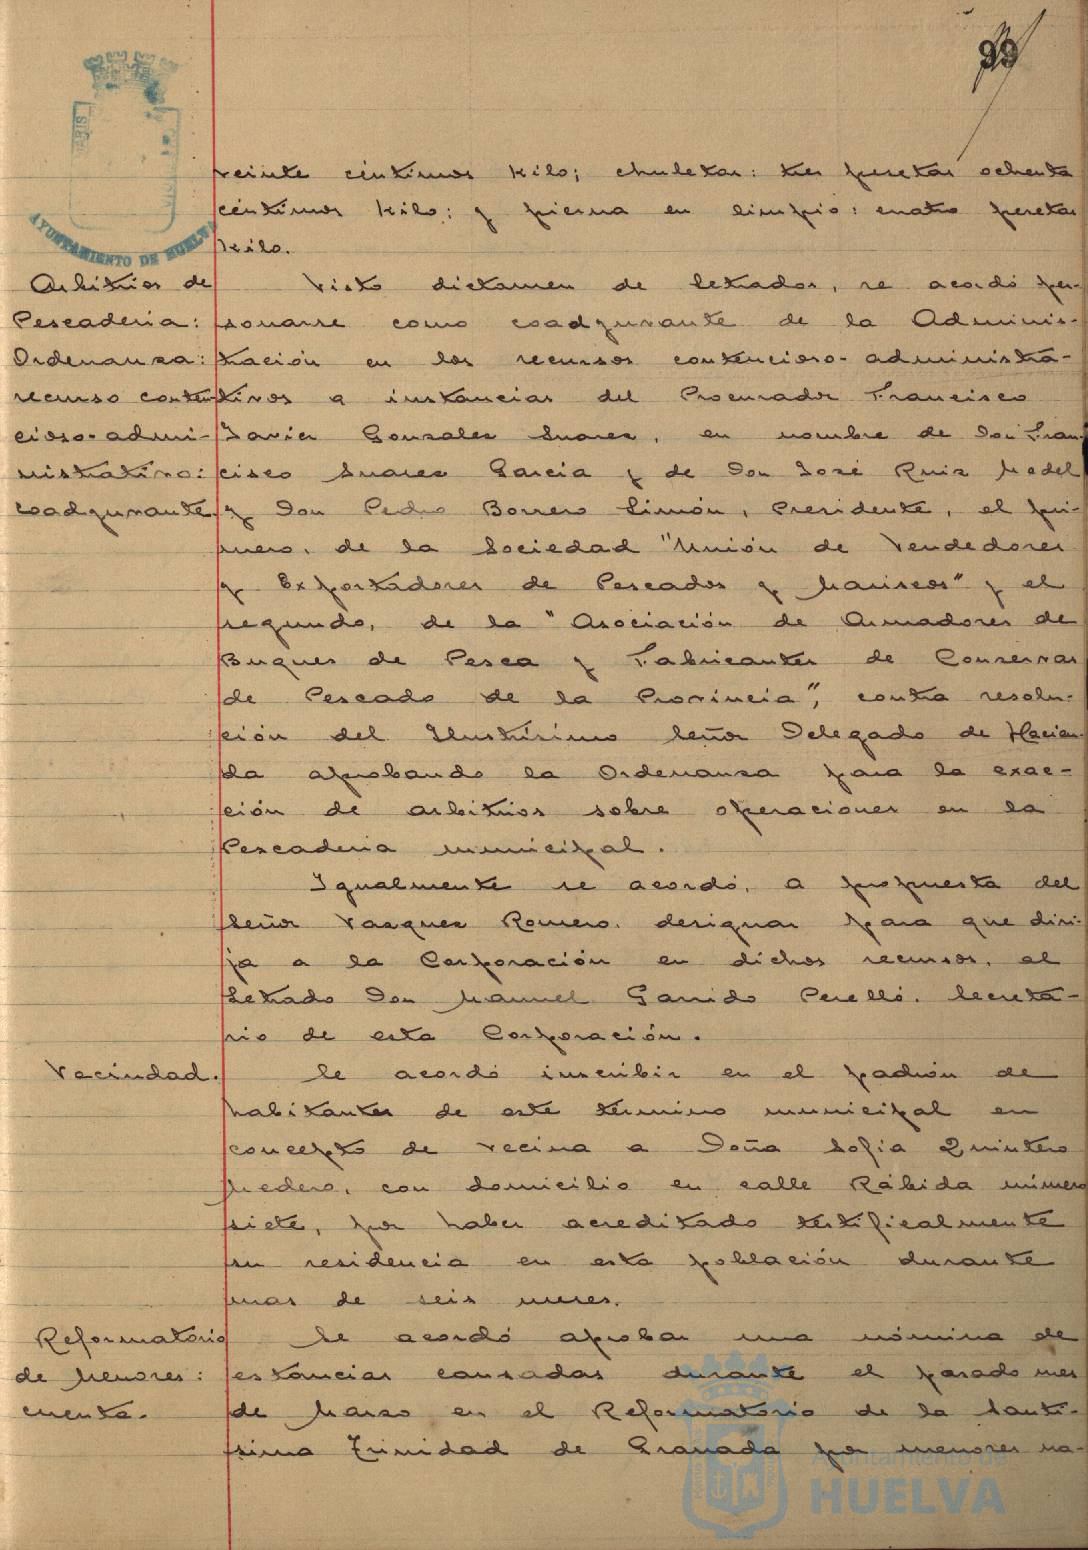 99
AYUNTAMIENTO DE HUELVA
veinte céntimos kilo; chuletas: tres pesetas ochenta
céntimos kilo: y pierna en limpio: cuatro pesetas
kilo.
Arbitrios de
Pescaderia:
Ordenanza:
recurso conten-
cioso-admi-
nistrativo:
coadyuvante
Visto dictamen de letrados, se acordó per-
sonarse como coadyuvante de la Adminis-
tración en los recursos contencioso-administra-
tivos a instancias del Procurador Francisco
Javier Gonzalez Suarez, en nombre de Don Fran-
cisco Suarez Garcia y de Don José Ruiz Medel
y Don Pedro Borrero Limón, Presidente, el pri-
mero, de la Sociedad "Unión de Vendedores
y Exportadores de Pescados y Mariscos" y el
segundo, de la "Asociación de Armadores de
Buques de Pesca y Fabricantes de Conservas
de Pescado de la Provincia", contra resolu-
ción del Ilustrisimo Señor Delegado de Hacien-
da aprobando la Ordenanza para la exac-
ción de arbitrios sobre operaciones en la
Pescaderia municipal.
Igualmente se acordó, a propuesta del
Señor Vazquez Romero, designar para que diri-
ja a la Corporación en dichos recursos, al
Letrado Don Manuel Garrido Perelló, Secreta-
rio de esta Corporación.
Vecindad.
Se acordó inscribir en el padrón de
habitantes de este término municipal en
concepto de vecina a Doña Sofia Quintero
Medero, con domicilio en calle Rábida número
siete, por haber acreditado testificalmente
su residencia en esta población durante
mas de seis meses.
Reformatorio
de Menores:
cuenta.
Se acordó aprobar una nómina de
estancias causadas durante el pasado mes
de Marzo en el Reformatorio de la Santi-
sima Trinidad de Granada por menores na-
Ayuntamiento de
HUELVA